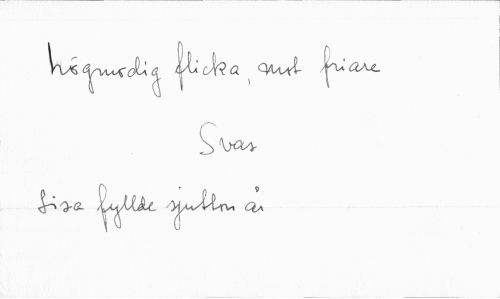 högmodig flicka, mot friare
Svas
Lisa fyllde sjutton år